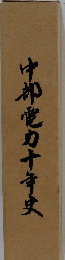 中部電力十年史